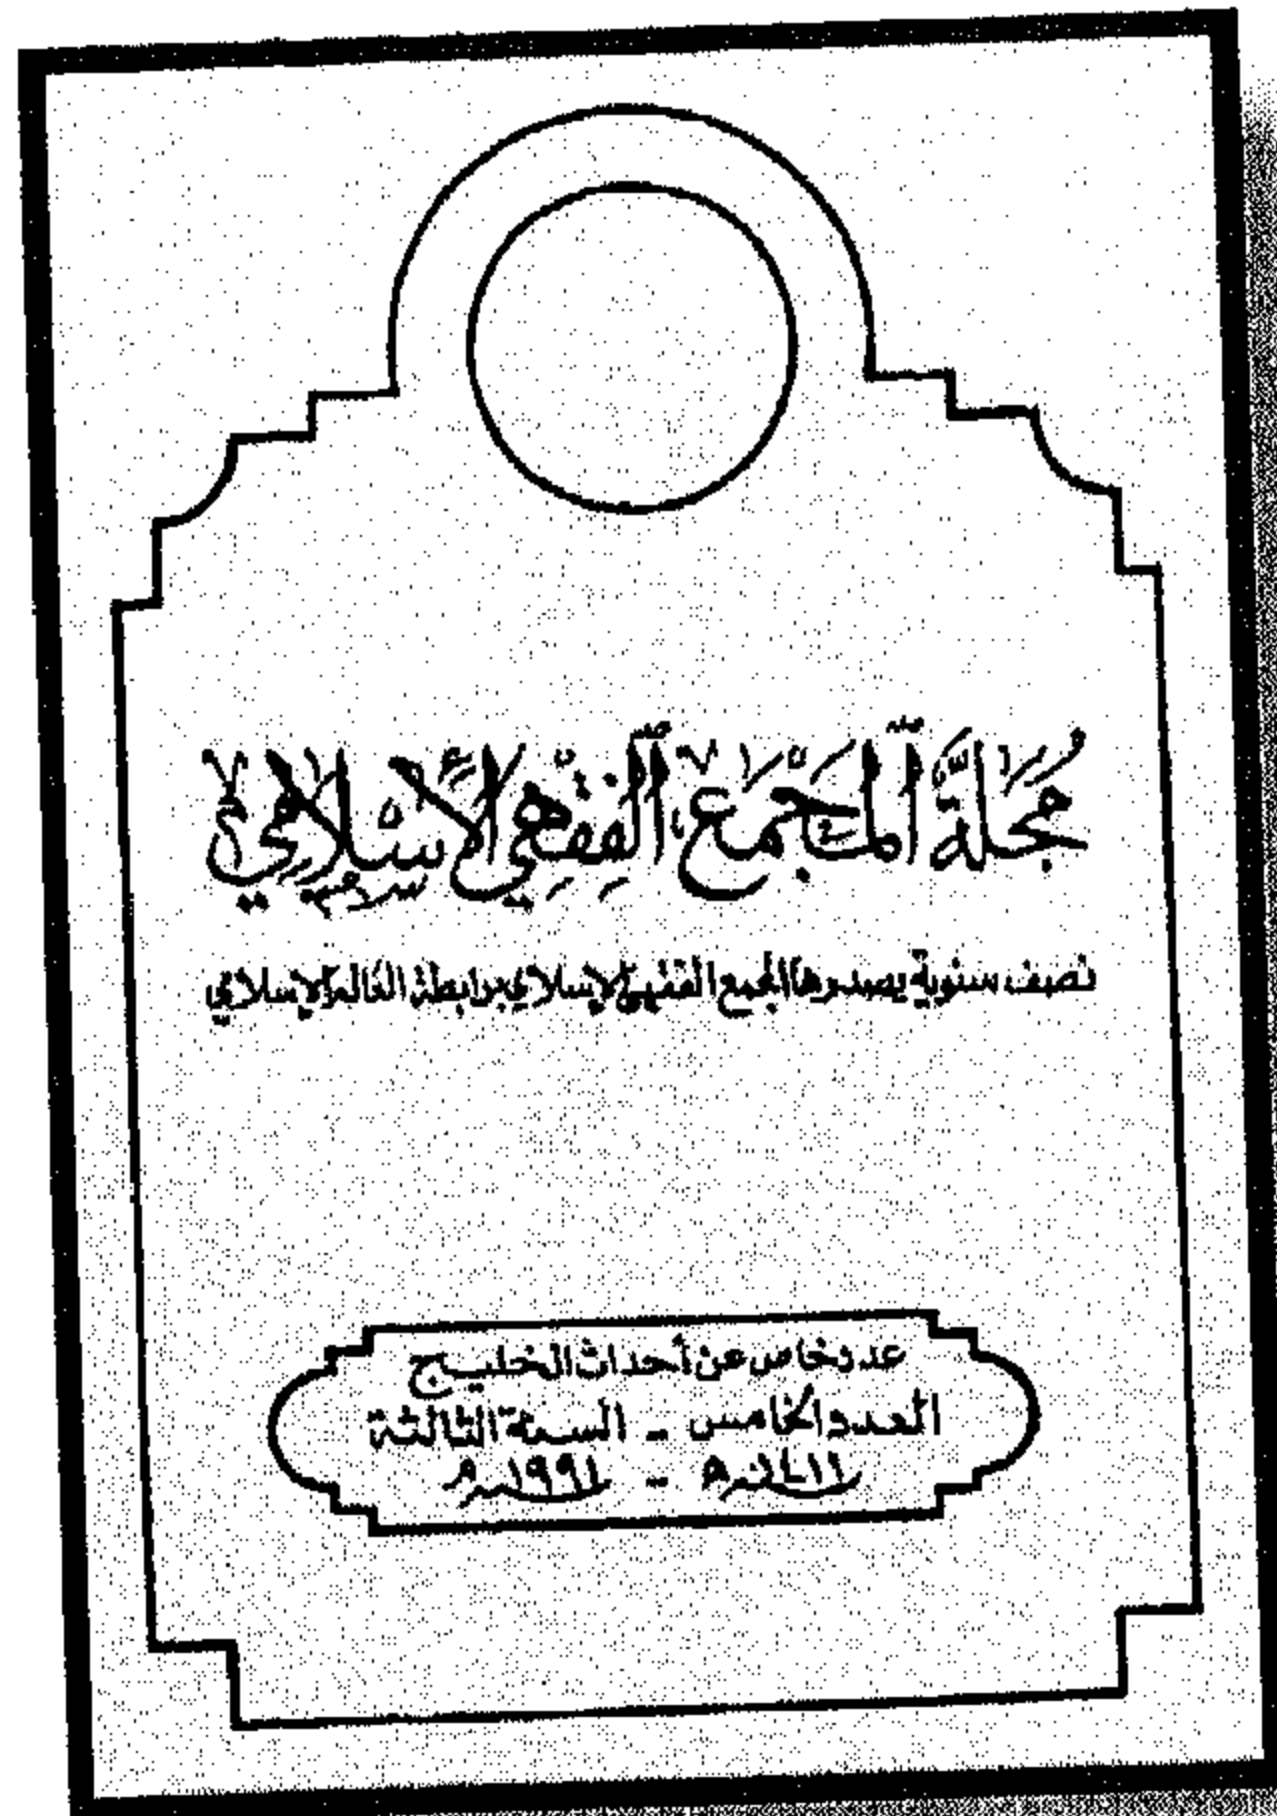 مُجَلَّة الْمَجْمَعِ الْفِقْهِيِّ الْإِسْلَامِيِّ
نصف سنوية يصدرها المجمع الفقهي الإسلامي برابطة العالم الإسلامي
عدد خاص عن أحداث الخليج
العدد الخامس - السنة الثالثة
١٤١١هـ - ١٩٩١م